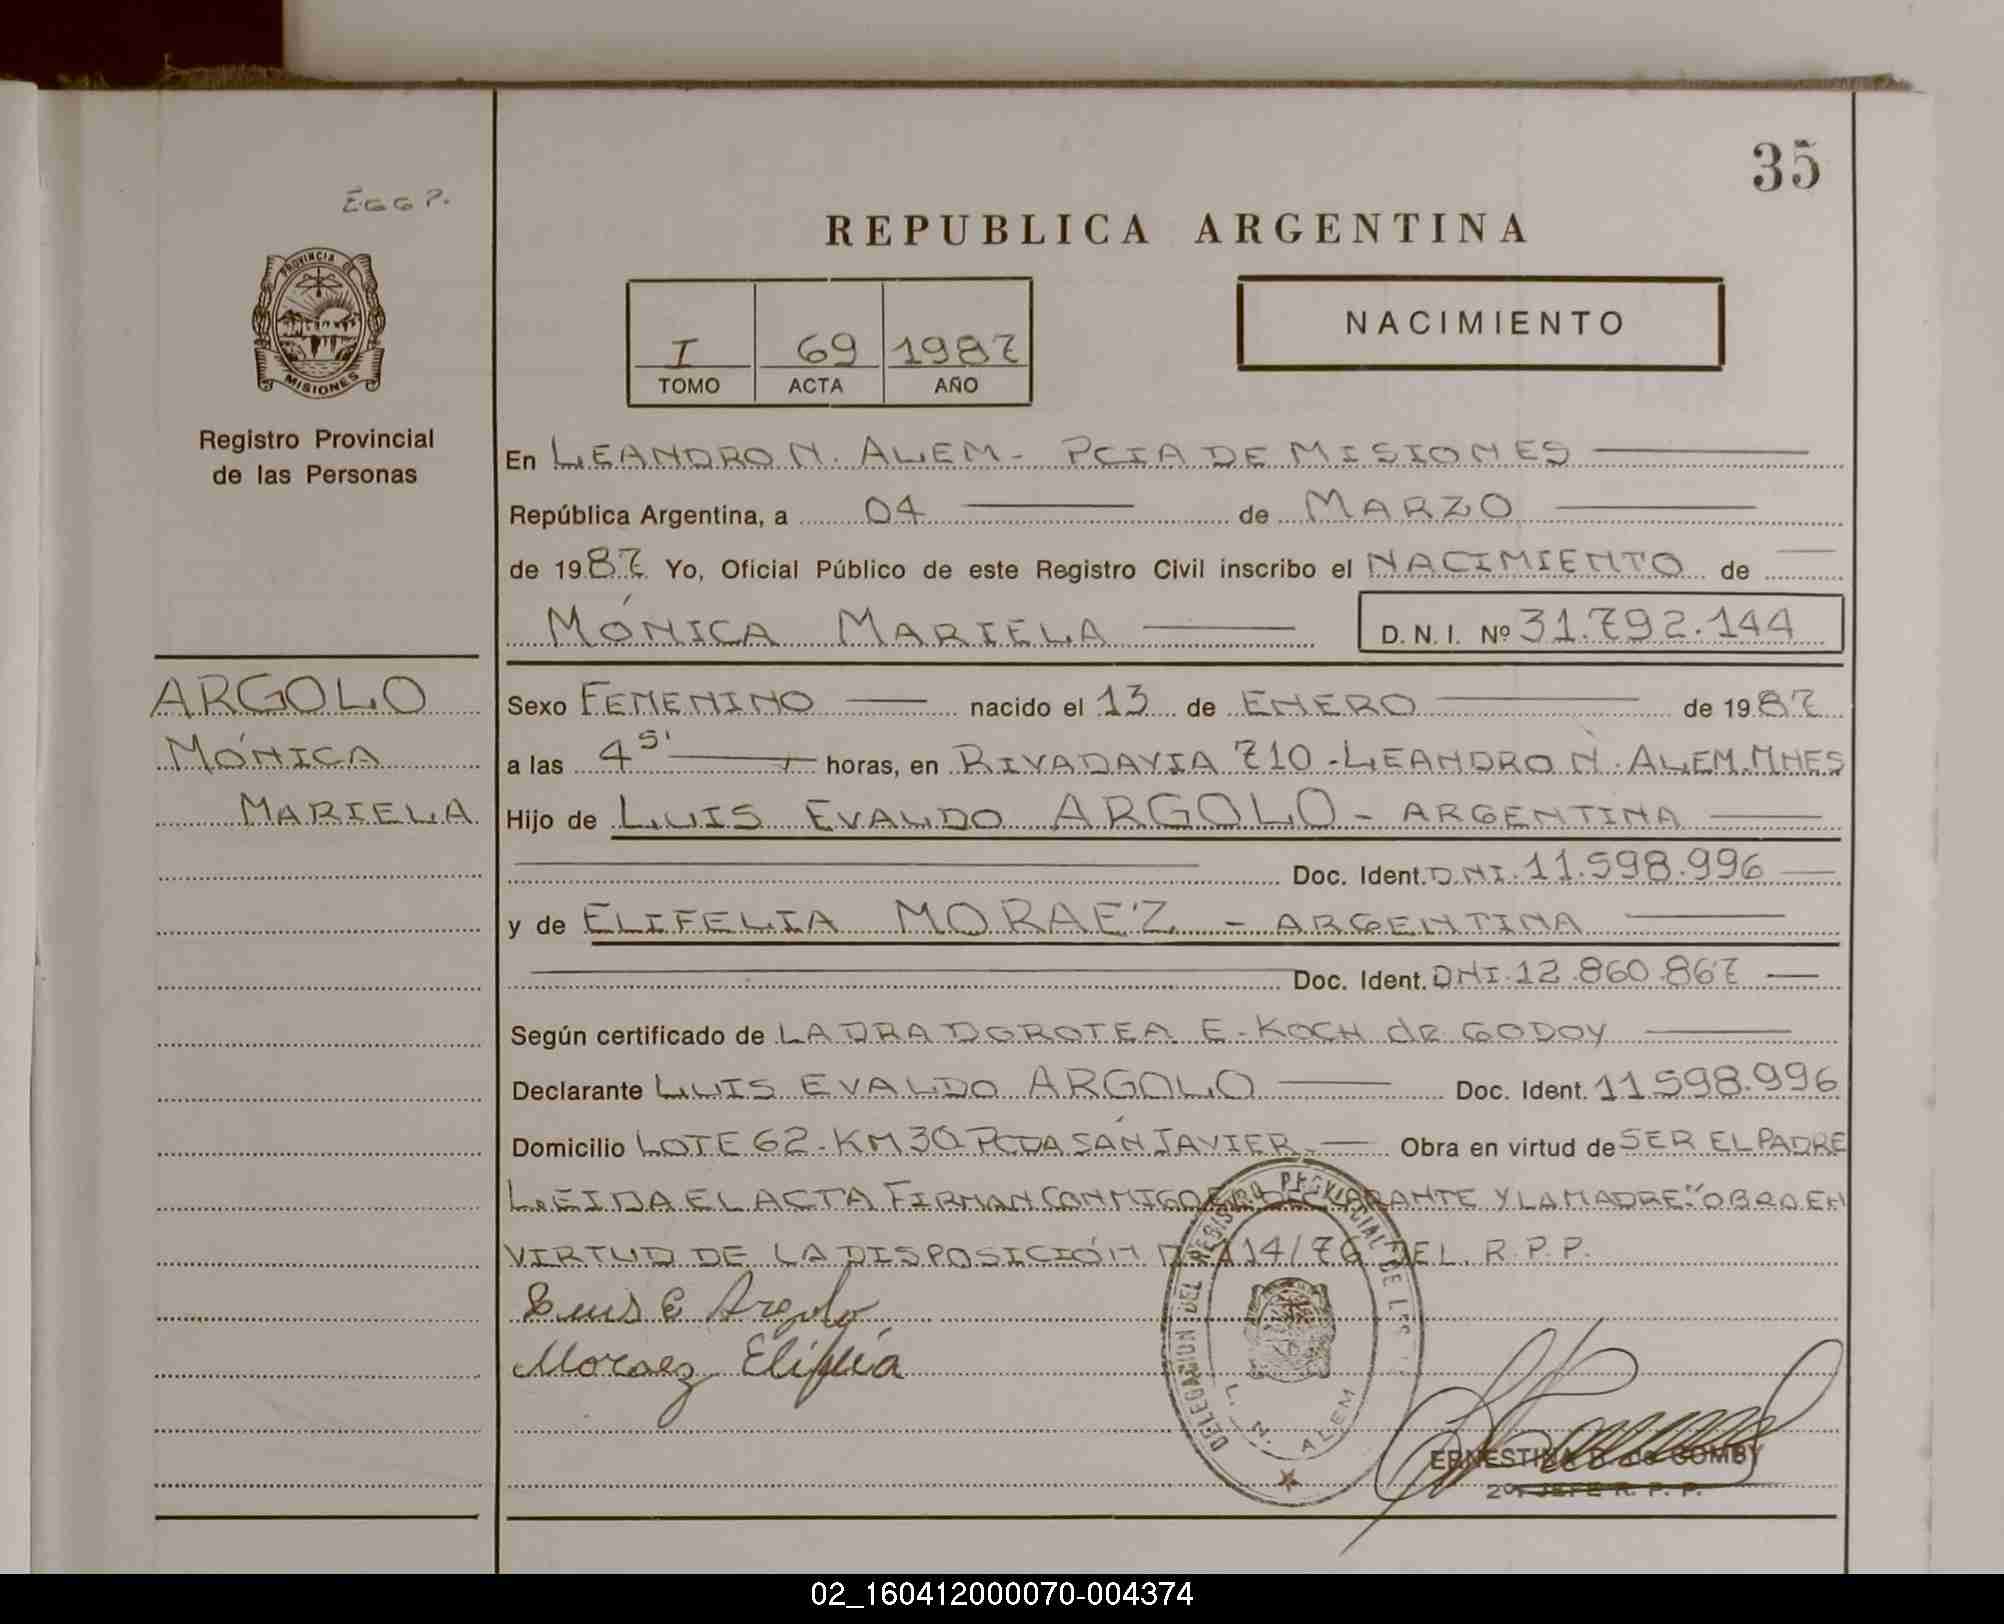 35
EGGP.
REPUBLICA ARGENTINA
PROVINCIA DE
MISIONES
Registro Provincial
de las Personas
I 69 1987
TOMO ACTA AÑO
NACIMIENTO
En LEANDRO N. ALEM - PCIA DE MISIONES
República Argentina, a 04 de MARZO
de 1987 Yo, Oficial Público de este Registro Civil inscribo el NACIMIENTO de
MÓNICA MARIELA D. N. I. Nº 31.792.144
ARGOLO
MÓNICA
MARIELA
Sexo FEMENINO nacido el 13 de ENERO de 1987
a las 4 5' horas, en RIVADAVIA 710 - LEANDRO N. ALEM. MNES
Hijo de LUIS EVALDO ARGOLO - ARGENTINA
Doc. Ident. DNI. 11.598.996
y de ELIFELIA MORAEZ - ARGENTINA
Doc. Ident. DNI. 12.860.867
Según certificado de LA DRA DOROTEA E. KOCH de GODOY
Declarante LUIS EVALDO ARGOLO Doc. Ident. 11.598.996
Domicilio LOTE 62 - KM 30 PCDA SAN JAVIER. Obra en virtud de SER EL PADRE
LEIDA EL ACTA FIRMAN CONMIGO EL DECLARANTE Y LA MADRE "OBRO EN
VIRTUD DE LA DISPOSICIÓN 114/76 DEL R.P.P.
Luis E Argolo
Moraez Elifelia
DELEGACION DEL REGISTRO PROVINCIAL DE LAS
L. N. ALEM
ERNESTINA B. de GOMBY
2º JEFE R. P. P.
02_160412000070-004374